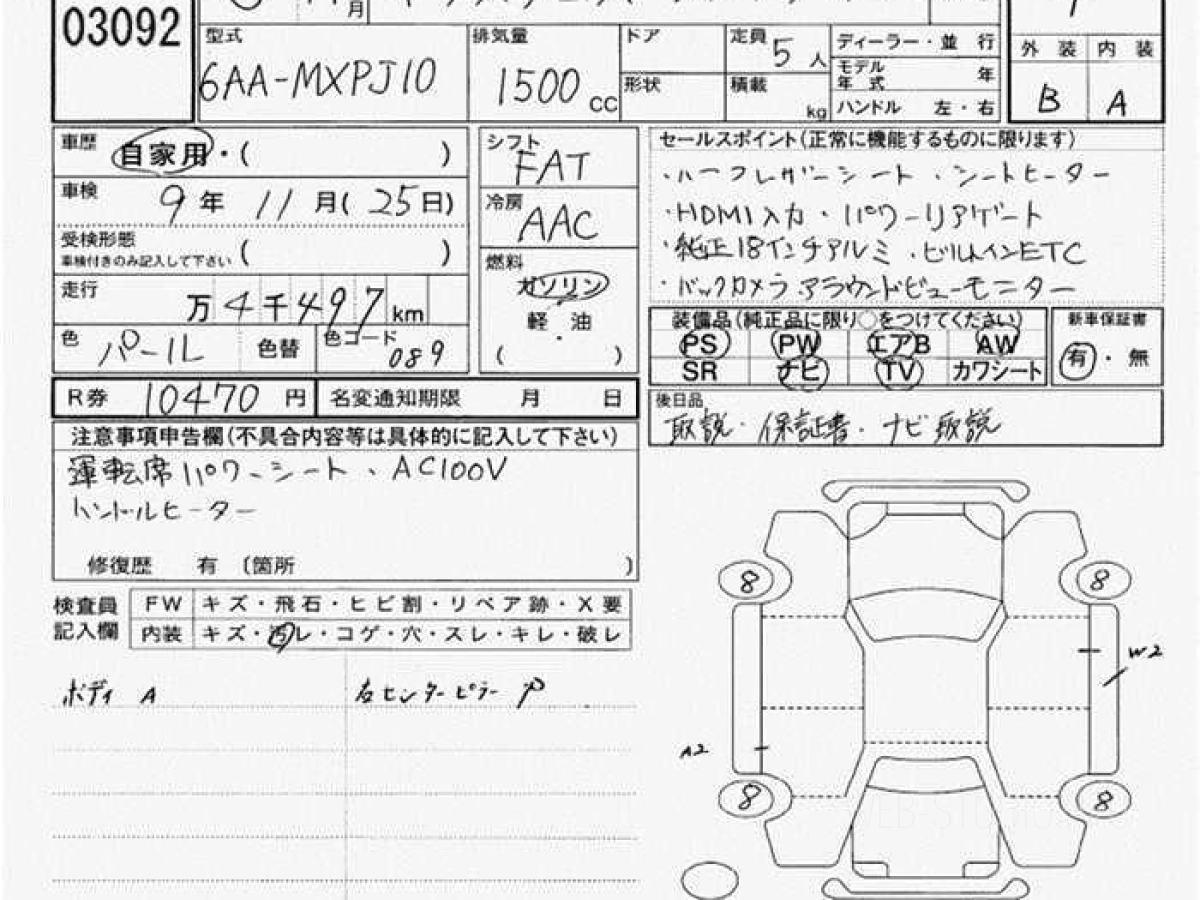 03092
月
型式 6AA-MXPJ10
排気量 1500 CC
ドア
形状
定員 5人
積載 kg
ディーラー・並 行
モデル年式 年
ハンドル 左・右
外 装 内 装
B A
車歴 自家用・( )
車検 9年 11月(25日)
受検形態
車検付きのみ記入して下さい ( )
走行 万4千497km
色 パール 色替 色コード 089
シフト FAT
冷房 AAC
燃料 ガソリン
軽・油
( )
セールスポイント(正常に機能するものに限ります)
・ハーフレザーシート ・シートヒーター
・HDMI入力・パワーリアゲート
・純正18インチアルミ ・ビルトインETC
・バックカメラ アラウンドビューモニター
装備品(純正品に限り○をつけてください)
PS PW エアB AW
SR ナビ TV カワシート
新車保証書
有・無
R券 10470 円 名変通知期限 月 日
後日品
取説・保証書・ナビ取説
注意事項申告欄(不具合内容等は具体的に記入して下さい)
運転席パワーシート・AC100V
ハンドルヒーター
修復歴 有 〔箇所 )
検査員記入欄
FW キズ・飛石・ヒビ割・リペア跡・X要
内装 キズ・汚レ・コゲ・穴・スレ・キレ・破レ
ボディ A
右センターピラー P
8 8
W2
A2
8 8